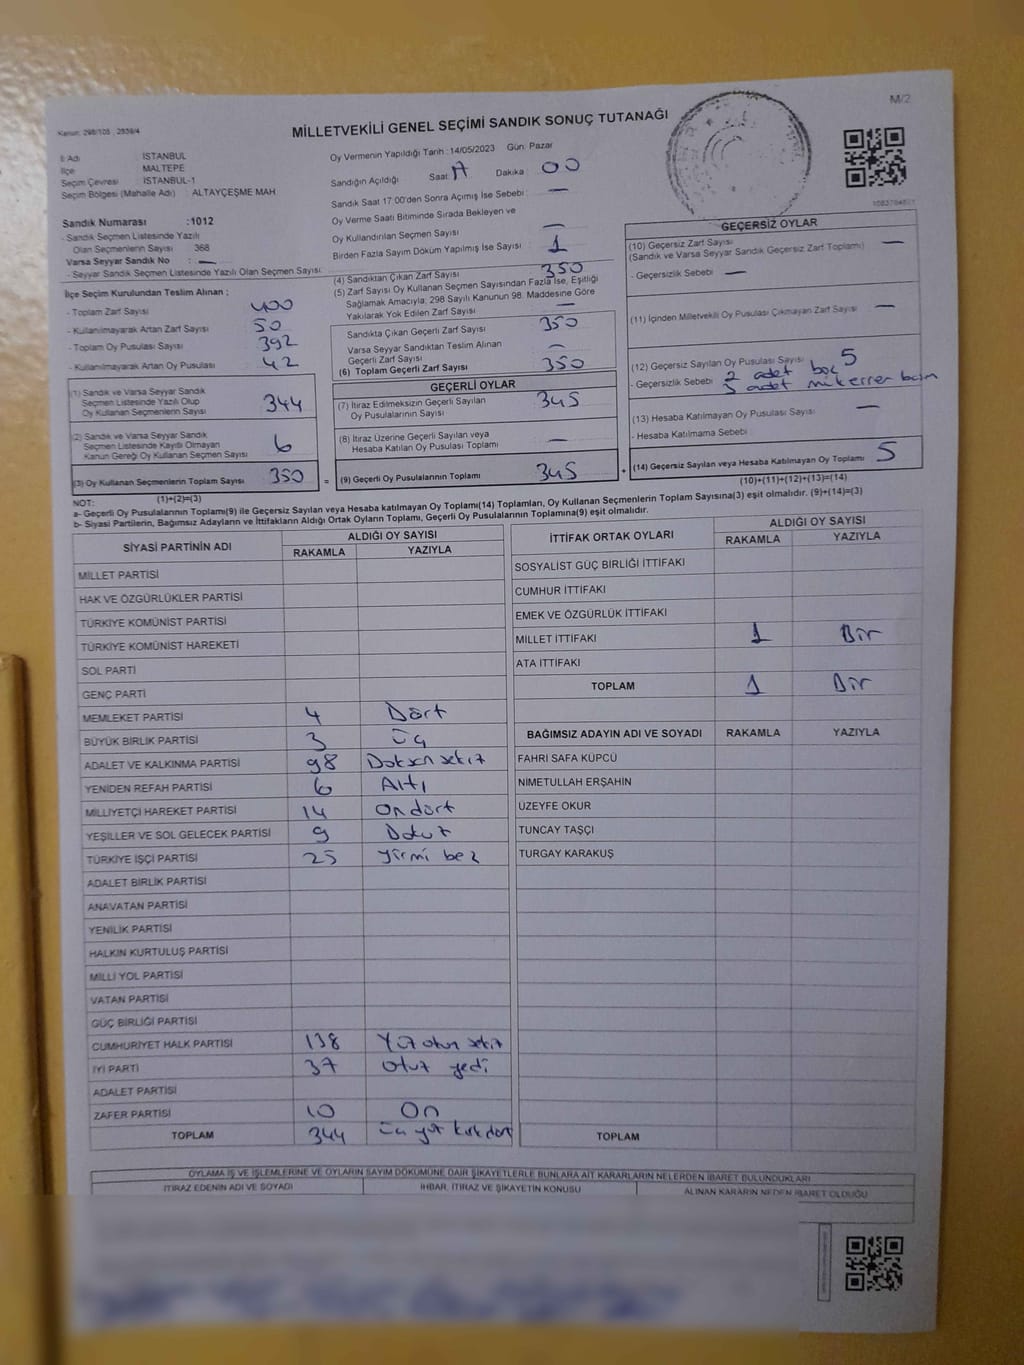 M/2
Kanun: 298/105 , 2839/4
MİLLETVEKİLİ GENEL SEÇİMİ SANDIK SONUÇ TUTANAĞI
İl Adı : İSTANBUL
İlçe : MALTEPE
Seçim Çevresi : İSTANBUL-1
Seçim Bölgesi (Mahalle Adı) : ALTAYÇEŞME MAH
Sandık Numarası :1012
- Sandık Seçmen Listesinde Yazılı
Olan Seçmenlerin Sayısı 368
Varsa Seyyar Sandık No : —
- Seyyar Sandık Seçmen Listesinde Yazılı Olan Seçmen Sayısı
Oy Vermenin Yapıldığı Tarih :14/05/2023 Gün: Pazar
Sandığın Açıldığı Saat: Dakika : 00
Sandık Saat 17:00'den Sonra Açımış İse Sebebi : —
Oy Verme Saati Bitiminde Sırada Bekleyen ve
Oy Kullandırılan Seçmen Sayısı —
Birden Fazla Sayım Döküm Yapılmış İse Sayısı 1
İlçe Seçim Kurulundan Teslim Alınan ;
- Toplam Zarf Sayısı 400
- Kullanılmayarak Artan Zarf Sayısı 50
- Toplam Oy Pusulası Sayısı 392
- Kullanılmayarak Artan Oy Pusulası 42
(1) Sandık ve Varsa Seyyar Sandık
Seçmen Listesinde Yazılı Olup
Oy Kullanan Seçmenlerin Sayısı 344
(2) Sandık ve Varsa Seyyar Sandık
Seçmen Listesinde Kayıtlı Olmayan
Kanun Gereği Oy Kullanan Seçmen Sayısı 6
(3) Oy Kullanan Seçmenlerin Toplam Sayısı 350
(1)+(2)=(3)
(4) Sandıktan Çıkan Zarf Sayısı 350
(5) Zarf Sayısı Oy Kullanan Seçmen Sayısından Fazla İse, Eşitliği
Sağlamak Amacıyla; 298 Sayılı Kanunun 98. Maddesine Göre
Yakılarak Yok Edilen Zarf Sayısı —
Sandıkta Çıkan Geçerli Zarf Sayısı 350
Varsa Seyyar Sandıktan Teslim Alınan
Geçerli Zarf Sayısı —
(6) Toplam Geçerli Zarf Sayısı 350
GEÇERLİ OYLAR
(7) İtiraz Edilmeksizin Geçerli Sayılan
Oy Pusulalarının Sayısı 345
(8) İtiraz Üzerine Geçerli Sayılan veya
Hesaba Katılan Oy Pusulası Toplamı —
= (9) Geçerli Oy Pusulalarının Toplamı 345 +
GEÇERSİZ OYLAR
(10) Geçersiz Zarf Sayısı —
(Sandık ve Varsa Seyyar Sandık Geçersiz Zarf Toplamı)
- Geçersizlik Sebebi —
(11) İçinden Milletvekili Oy Pusulası Çıkmayan Zarf Sayısı —
(12) Geçersiz Sayılan Oy Pusulası Sayısı 5
- Geçersizlik Sebebi 2 adet boş
adet mükerrer
(13) Hesaba Katılmayan Oy Pusulası Sayısı —
- Hesaba Katılmama Sebebi
(14) Geçersiz Sayılan veya Hesaba Katılmayan Oy Toplamı 5
(10)+(11)+(12)+(13)=(14)
NOT:
a- Geçerli Oy Pusulalarının Toplamı(9) ile Geçersiz Sayılan veya Hesaba Katılmayan Oy Toplamı(14) Toplamları, Oy Kullanan Seçmenlerin Toplam Sayısına(3) eşit olmalıdır. (9)+(14)=(3)
b- Siyasi Partilerin, Bağımsız Adayların ve İttifakların Aldığı Ortak Oyların Toplamı, Geçerli Oy Pusulalarının Toplamına(9) eşit olmalıdır.
SİYASİ PARTİNİN ADI ALDIĞI OY SAYISI
RAKAMLA YAZIYLA
MİLLET PARTİSİ
HAK VE ÖZGÜRLÜKLER PARTİSİ
TÜRKİYE KOMÜNİST PARTİSİ
TÜRKİYE KOMÜNİST HAREKETİ
SOL PARTİ
GENÇ PARTİ
MEMLEKET PARTİSİ 4 Dört
BÜYÜK BİRLİK PARTİSİ 3 üç
ADALET VE KALKINMA PARTİSİ 98 Doksan sekiz
YENİDEN REFAH PARTİSİ 6 Altı
MİLLİYETÇİ HAREKET PARTİSİ 14 on dört
YEŞİLLER VE SOL GELECEK PARTİSİ 9 Dokuz
TÜRKİYE İŞÇİ PARTİSİ 25 yirmi beş
ADALET BİRLİK PARTİSİ
ANAVATAN PARTİSİ
YENİLİK PARTİSİ
HALKIN KURTULUŞ PARTİSİ
MİLLİ YOL PARTİSİ
VATAN PARTİSİ
GÜÇ BİRLİĞİ PARTİSİ
CUMHURİYET HALK PARTİSİ 138 Yüz otuz sekiz
İYİ PARTİ 37 otuz yedi
ADALET PARTİSİ
ZAFER PARTİSİ 10 On
TOPLAM 344 üç yüz kırk dört
İTTİFAK ORTAK OYLARI ALDIĞI OY SAYISI
RAKAMLA YAZIYLA
SOSYALİST GÜÇ BİRLİĞİ İTTİFAKI
CUMHUR İTTİFAKI
EMEK VE ÖZGÜRLÜK İTTİFAKI
MİLLET İTTİFAKI 1 Bir
ATA İTTİFAKI
TOPLAM 1 Bir
BAĞIMSIZ ADAYIN ADI VE SOYADI RAKAMLA YAZIYLA
FAHRİ SAFA KÜPCÜ
NİMETULLAH ERŞAHİN
ÜZEYFE OKUR
TUNCAY TAŞÇI
TURGAY KARAKUŞ
TOPLAM
OYLAMA İŞ VE İŞLEMLERİNE VE OYLARIN SAYIM DÖKÜMÜNE DAİR ŞİKAYETLERLE BUNLARA AİT KARARLARIN NELERDEN İBARET BULUNDUKLARI
İTİRAZ EDENİN ADI VE SOYADI İHBAR, İTİRAZ VE ŞİKAYETİN KONUSU ALINAN KARARIN NEDEN İBARET OLDUĞU